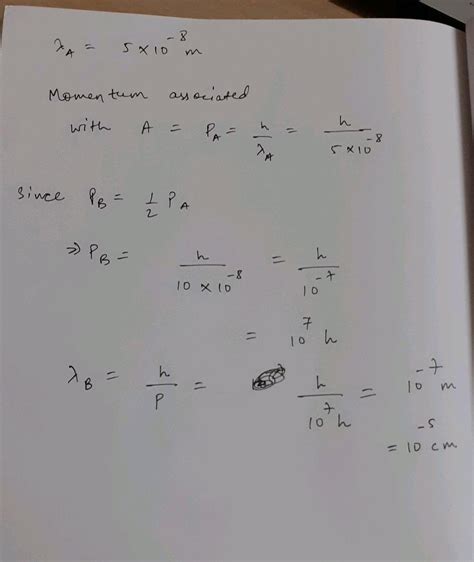 λ_A = 5 × 10^-8 m
Momentum associated
with A = P_A = h/λ_A = h/(5 × 10^-8)
Since P_B = 1/2 P_A
⇒ P_B = h/(10 × 10^-8) = h/10^-7
= 10^7 h
λ_B = h/P = h/(10^7 h) = 10^-7 m
= 10^-5 cm